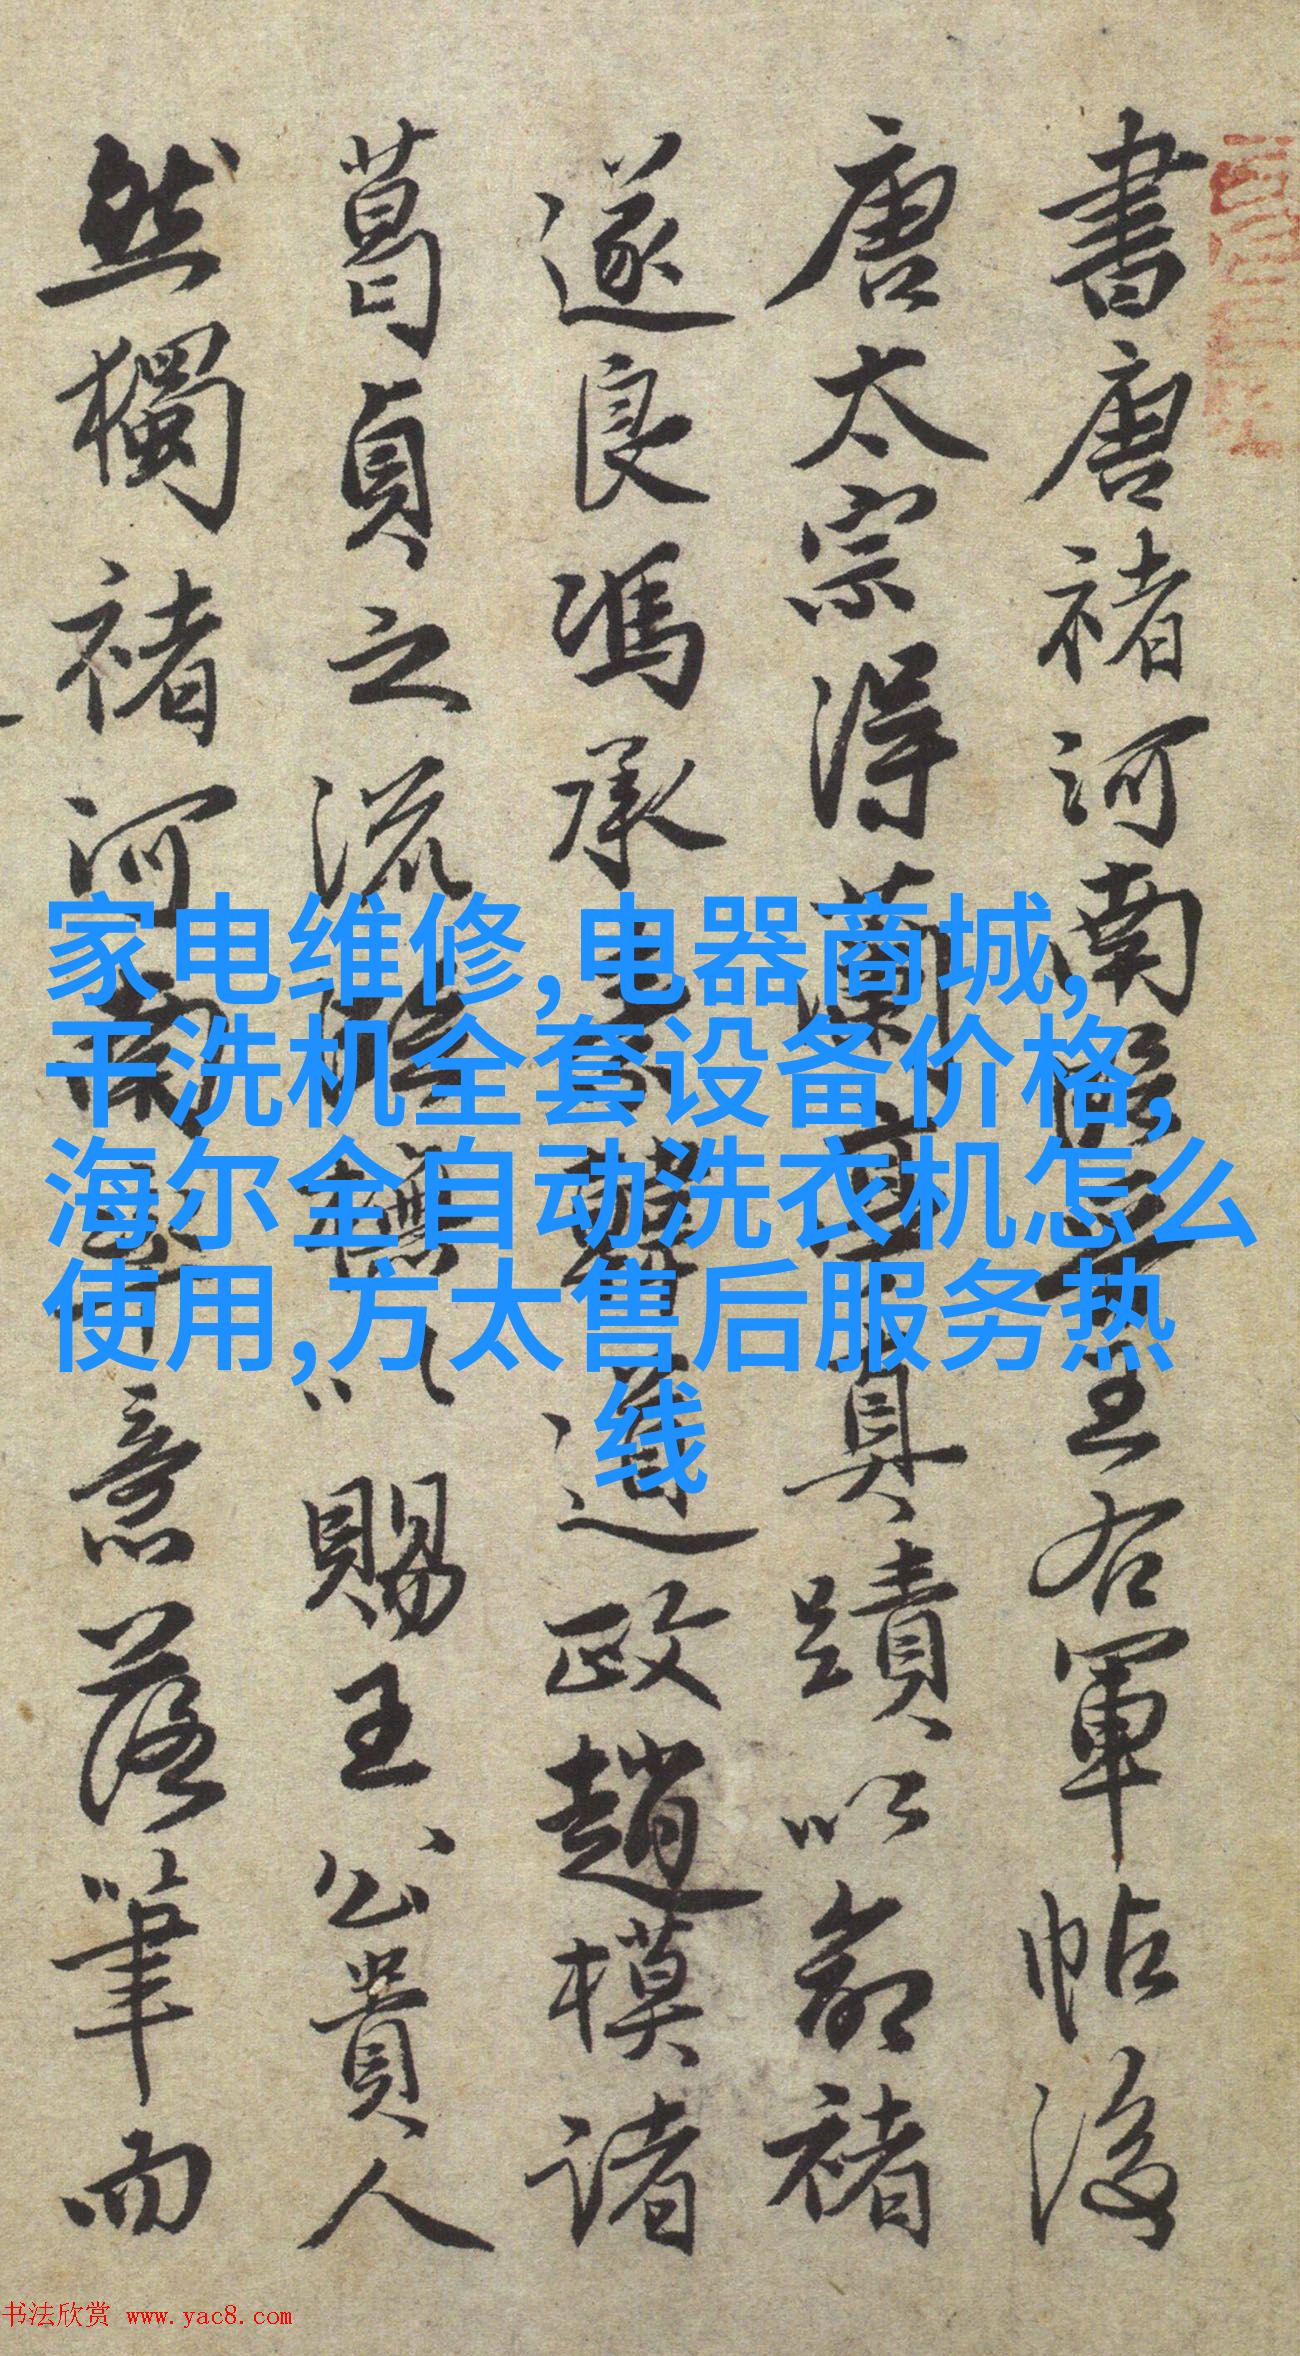 書唐褚河南臨王右軍帖後
唐太宗得蘭亭真蹟以命褚
遂良馮承素韓道政趙模諸
葛貞之流臨橅以賜王公貴人
然獨褚河南意落筆而
家电维修,电器商城,
干洗机全套设备价格,
海尔全自动洗衣机怎么
使用,方太售后服务热
线
书法欣赏 www.yac8.com